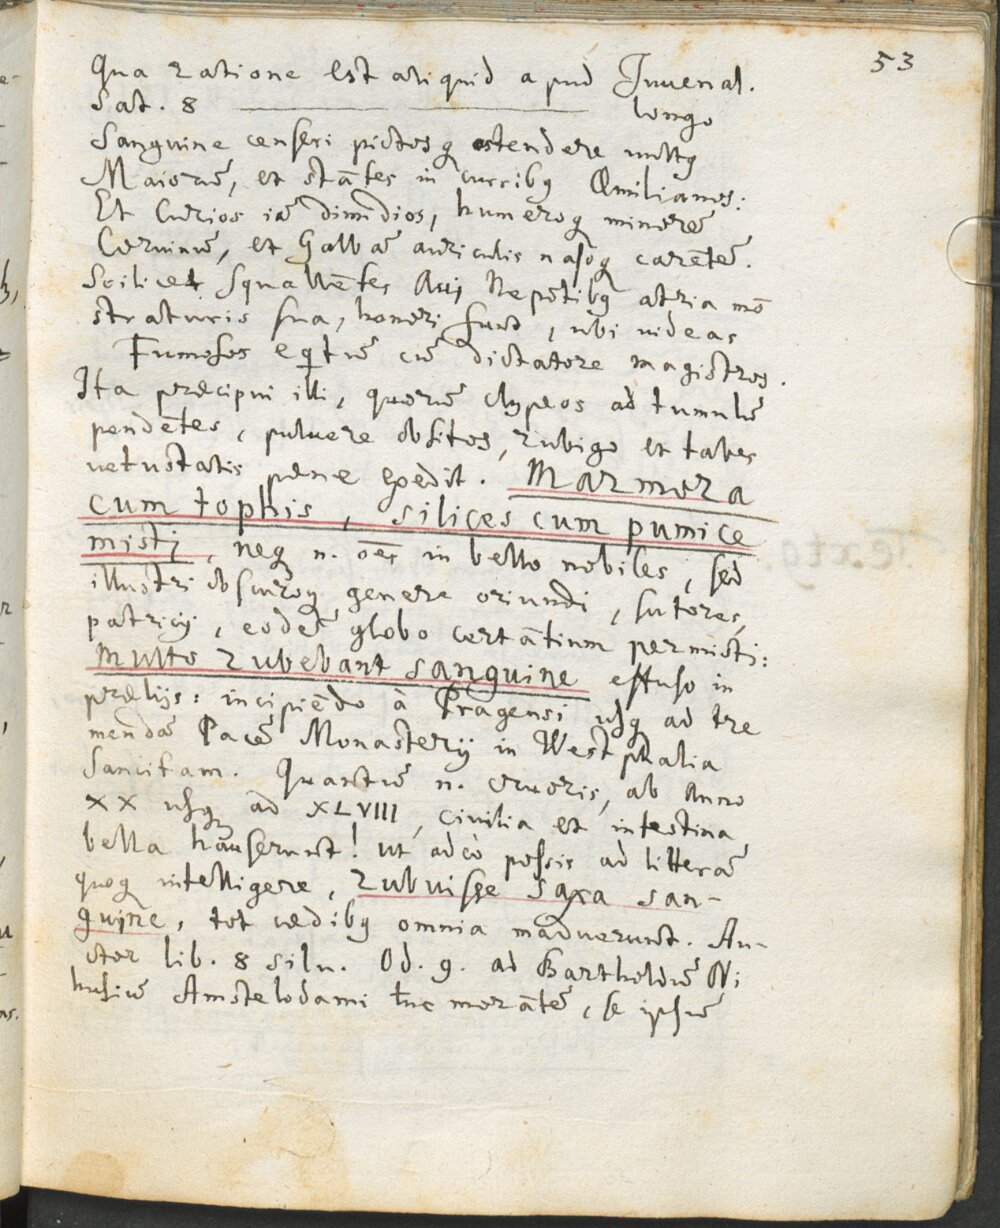 53
Qua ratione est aliquid apud Juvenal.
Sat. 8 ——— longo
Sanguine censeri pictosq ostendere vultg
Maiorū, et stātes in curribg Æmilianos:
Et Curios iā dimidios, humeroq minorē
Corvinū, et Galbā auriculis nasoq carētē.
Scilicet squallētes Avi Nepotibg atria mō
straturis sua, honori sunt, ubi videas
Fumosos eqtū cū dictatore magistros.
Ita præcipui illi, quorū clypeos ad tumulū
pendētes, pulvere obsitos, rubigo et tabes
vetustatis pene exedit. Marmora
cum tophis, silices cum pumice
misti, neq n. oēs in bello nobiles, sed
illustri obscuroq genere oriundi, sutores,
patricij, eodē globo certātium permisti:
Multo rubebant sanguine effuso in
prælijs: incipiēdo à Pragensi usq ad tre
mendā Pacē Monasterij in Westphalia
Sancitam. Quantū n. cruoris, ab Anno
XX usq ad XLVIII, civilia et intestina
bella hauserunt! ut adeò possis ad litterā
quoq intelligere, rubuisse saxa san-
guine, tot cædibg omnia maduerunt. Au-
ctor lib. 8 silv. Od. 9. ad Bartholdū Ni
husiū Amstelodami tūc morātē, se ipsū